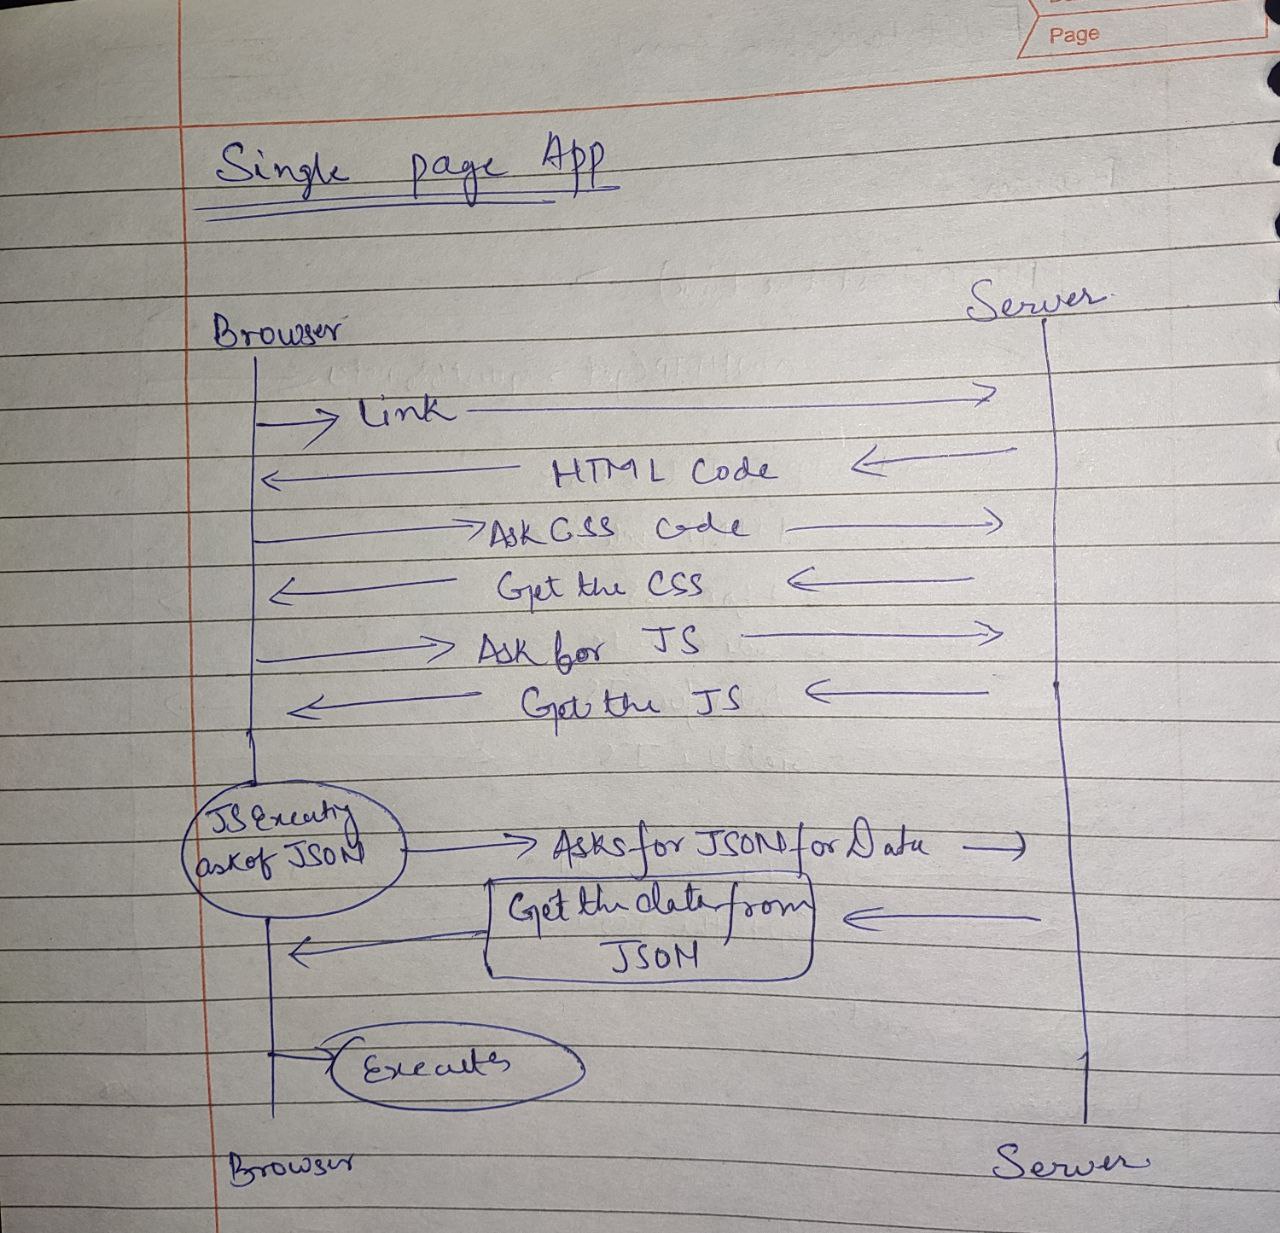 Page
Single page App
Browser
Server
Link
HTML Code
Ask CSS Code
Get the CSS
Ask for JS
Get the JS
JS Executig
ask of JSON
Asks for JSON for Data
Get the data from
JSON
Executes
Browser
Server